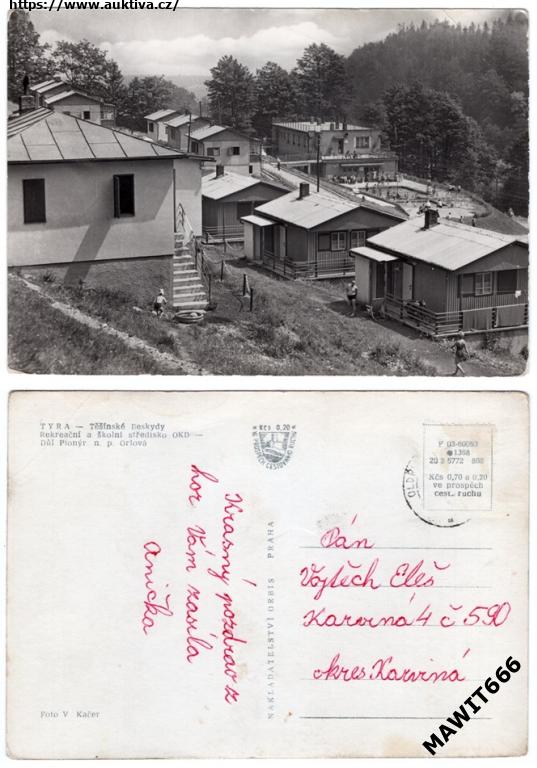 https://www.auktiva.cz/
TYRA — Těšínské Beskydy
Rekreační a školní středisko OKD —
Důl Pionýr n. p. Orlová
Kčs 0,20
VE PROSPĚCH CESTOVNÍHO RUCHU
F 03-60053
1368
Kčs 0,70 a 0,20
ve prospěch
cest. ruchu
Krasný pozdrav z
hor Vám zasíla
Anička
NAKLADATELSTVÍ ORBIS PRAHA
Pán
Vojtěch Eleš
Karviná 4 č 590
okres Karviná
Foto V. Kačer
MAWIT666